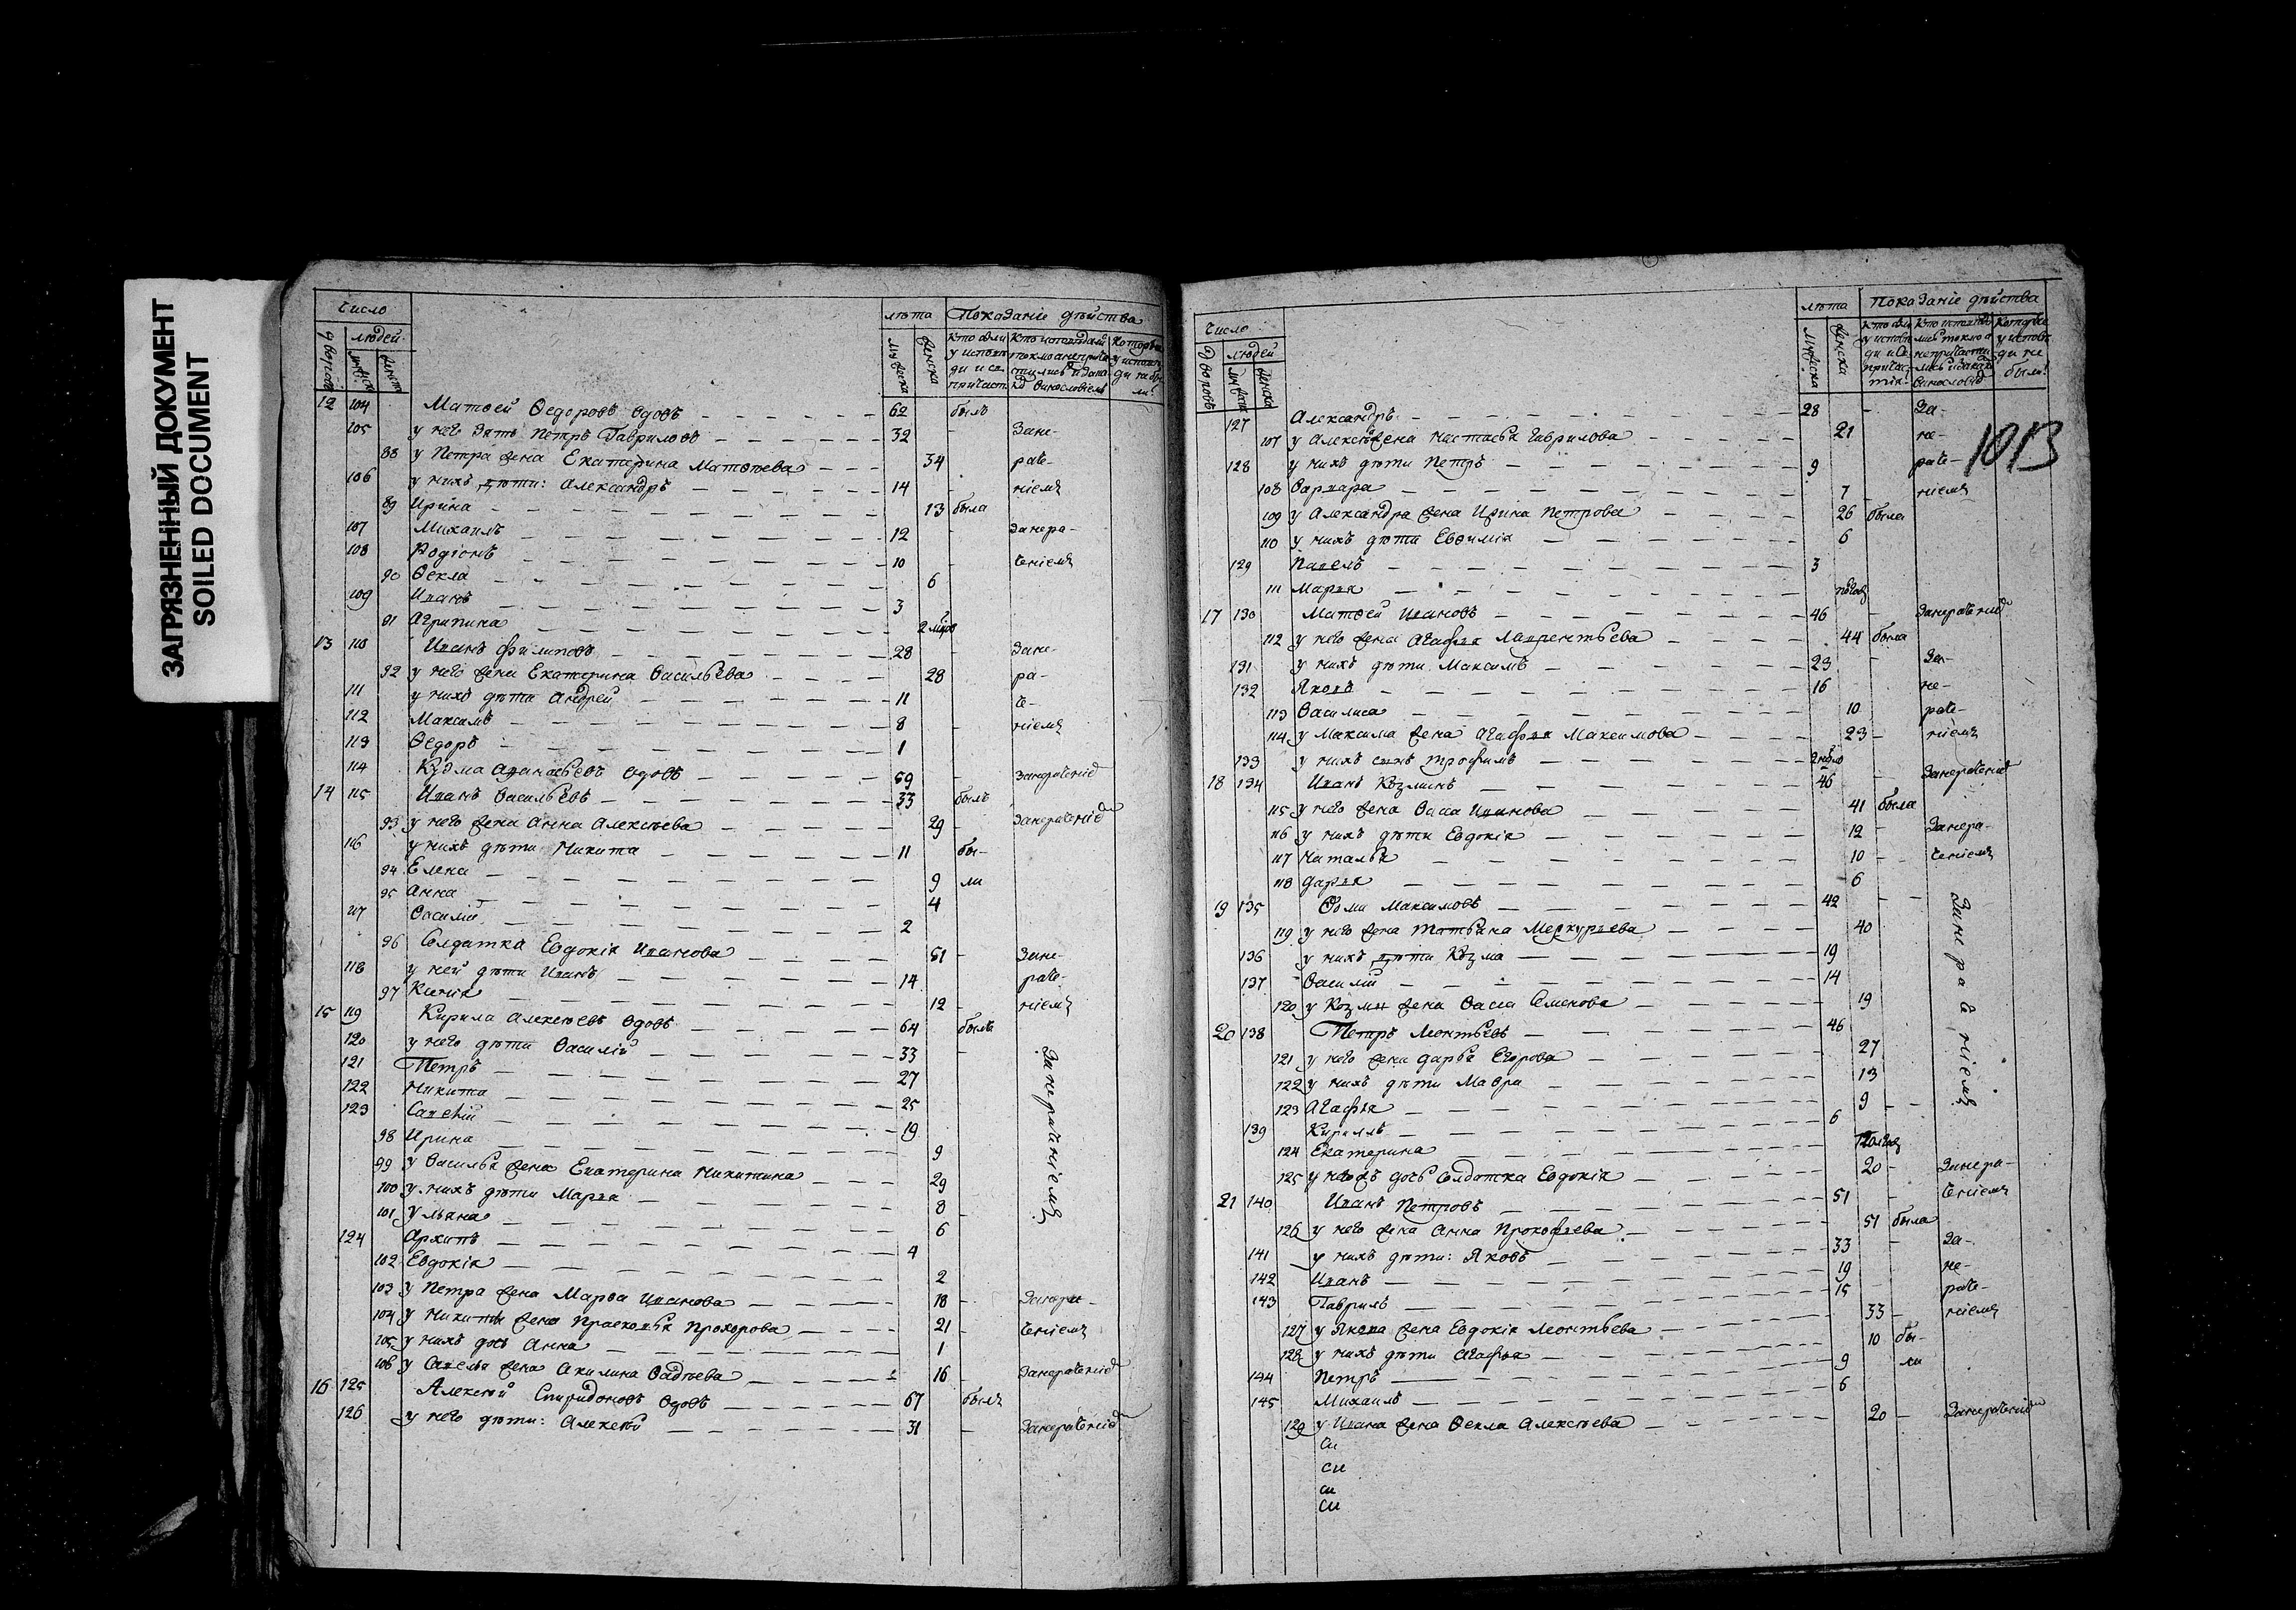 ЗАГРЯЗНЕННЫЙ ДОКУМЕНТ
SOILED DOCUMENT
Число
лѣта Показаніе дѣйства
дворовъ людей
мужеска женска
12 104 Матвей Ѳедоровъ вдовъ 62 былъ
105 у него зять Петръ Гавриловъ 32 - Зане-
88 у Петра жена Екатерина Матвѣева 34 раче-
106 у нихъ дѣти: Александръ 14 ніемъ
89 Ирина 13 была
107 Михаилъ 12 - Занера-
108 Родіонъ 10 - ченіемъ
90 Ѳекла 6
109 Иванъ 3
91 Агрипина 2
13 110 Иванъ Филиповъ 28 - Зане-
92 у него жена Екатерина Васильева 28 ра-
111 у нихъ дѣти Андрей 11 че-
112 Максимъ 8 - ніемъ
113 Ѳедоръ 1
114 Кузма Аѳанасьевъ вдовъ 59 - Занераченіе
14 115 Иванъ Васильевъ 33 былъ
93 у него жена Анна Алексѣева 29 - Занераченіе
116 у нихъ дѣти Никита 11 бы-
94 Елена 9 ли
95 Анна 4
117 Василій 2
96 Солдатка Евдокія Иванова 51 - Зане-
118 у ней дѣти Иванъ 14 раче-
97 Ксенія 12 - ніемъ
15 119 Кирила Алексѣевъ вдовъ 64 былъ
120 у него дѣти Василій 33 -
Занераченіемъ
121 Петръ 27
122 Никита 25
123 Савелій 19
98 Ирина 9
99 у Василья жена Екатерина Никитина 29
100 у нихъ дѣти Марья 8
101 Ульяна 6
124 Архипъ 4
102 Евдокія 2
103 у Петра жена Марѳа Иванова 18 - Занера-
104 у Никиты жена Прасковья Прохорова 21 - ченіемъ
105 у нихъ дочь Анна 1
106 у Савелья жена Акилина Фадѣева 16 - Занераченіе
16 125 Алексѣй Спиридоновъ вдовъ 67 былъ
126 у него дѣти: Алексѣй 31 - Занераченіе
Число
лѣта Показаніе дѣйства
дворовъ людей
мужеска женска
1013
127 Александръ 28 - За-
107 у Алексѣя жена Настасья Гаврилова 21 не-
128 у нихъ дѣти Петръ 9 раче-
108 Варвара 7 ніемъ
109 у Александра жена Ирина Петрова 26 была
110 у нихъ дѣти Евѳимія 6
129 Павелъ 3
111 Марья
17 130 Матвей Ивановъ 46 - Занераченіе
112 у него жена Агафья Лаврентьева 44 была
131 у нихъ дѣти Максимъ 23 - За-
132 Яковъ 16 не-
113 Василиса 10 раче-
114 у Максима жена Агафья Максимова 23 - ніемъ
133 у нихъ сынъ Трофимъ
18 134 Иванъ Козминъ 46 - Занераченіе
115 у него жена Васса Иванова 41 была
116 у нихъ дѣти Евдокія 12 - Занера-
117 Наталья 10 - ченіемъ
118 Дарья 6
19 135 Ѳома Максимовъ 42 -
Занераченіемъ
119 у него жена Татьяна Меркурьева 40
136 у нихъ дѣти Козма 19
137 Василій 14
120 у Козмы жена Васса Семенова 19
20 138 Петръ Леонтьевъ 46
121 у него жена Дарья Егорова 27
122 у нихъ дѣти Мавра 13
123 Агафья 9
139 Кирилъ 6
124 Екатерина
125 у нихъ дочь Солдатка Евдокія 20 - Занера-
21 140 Иванъ Петровъ 51 - ченіемъ
126 у него жена Анна Прокофьева 51 была
141 у нихъ дѣти: Яковъ 33 - За-
142 Иванъ 19 не-
143 Гаврилъ 15 раче-
127 у Якова жена Евдокія Леонтьева 33 - ніемъ
128 у нихъ дѣти Агафья 10 бы-
144 Петръ 9 ли
145 Михаилъ 6
129 у Ивана жена Ѳекла Алексѣева 20 - Занераченіе